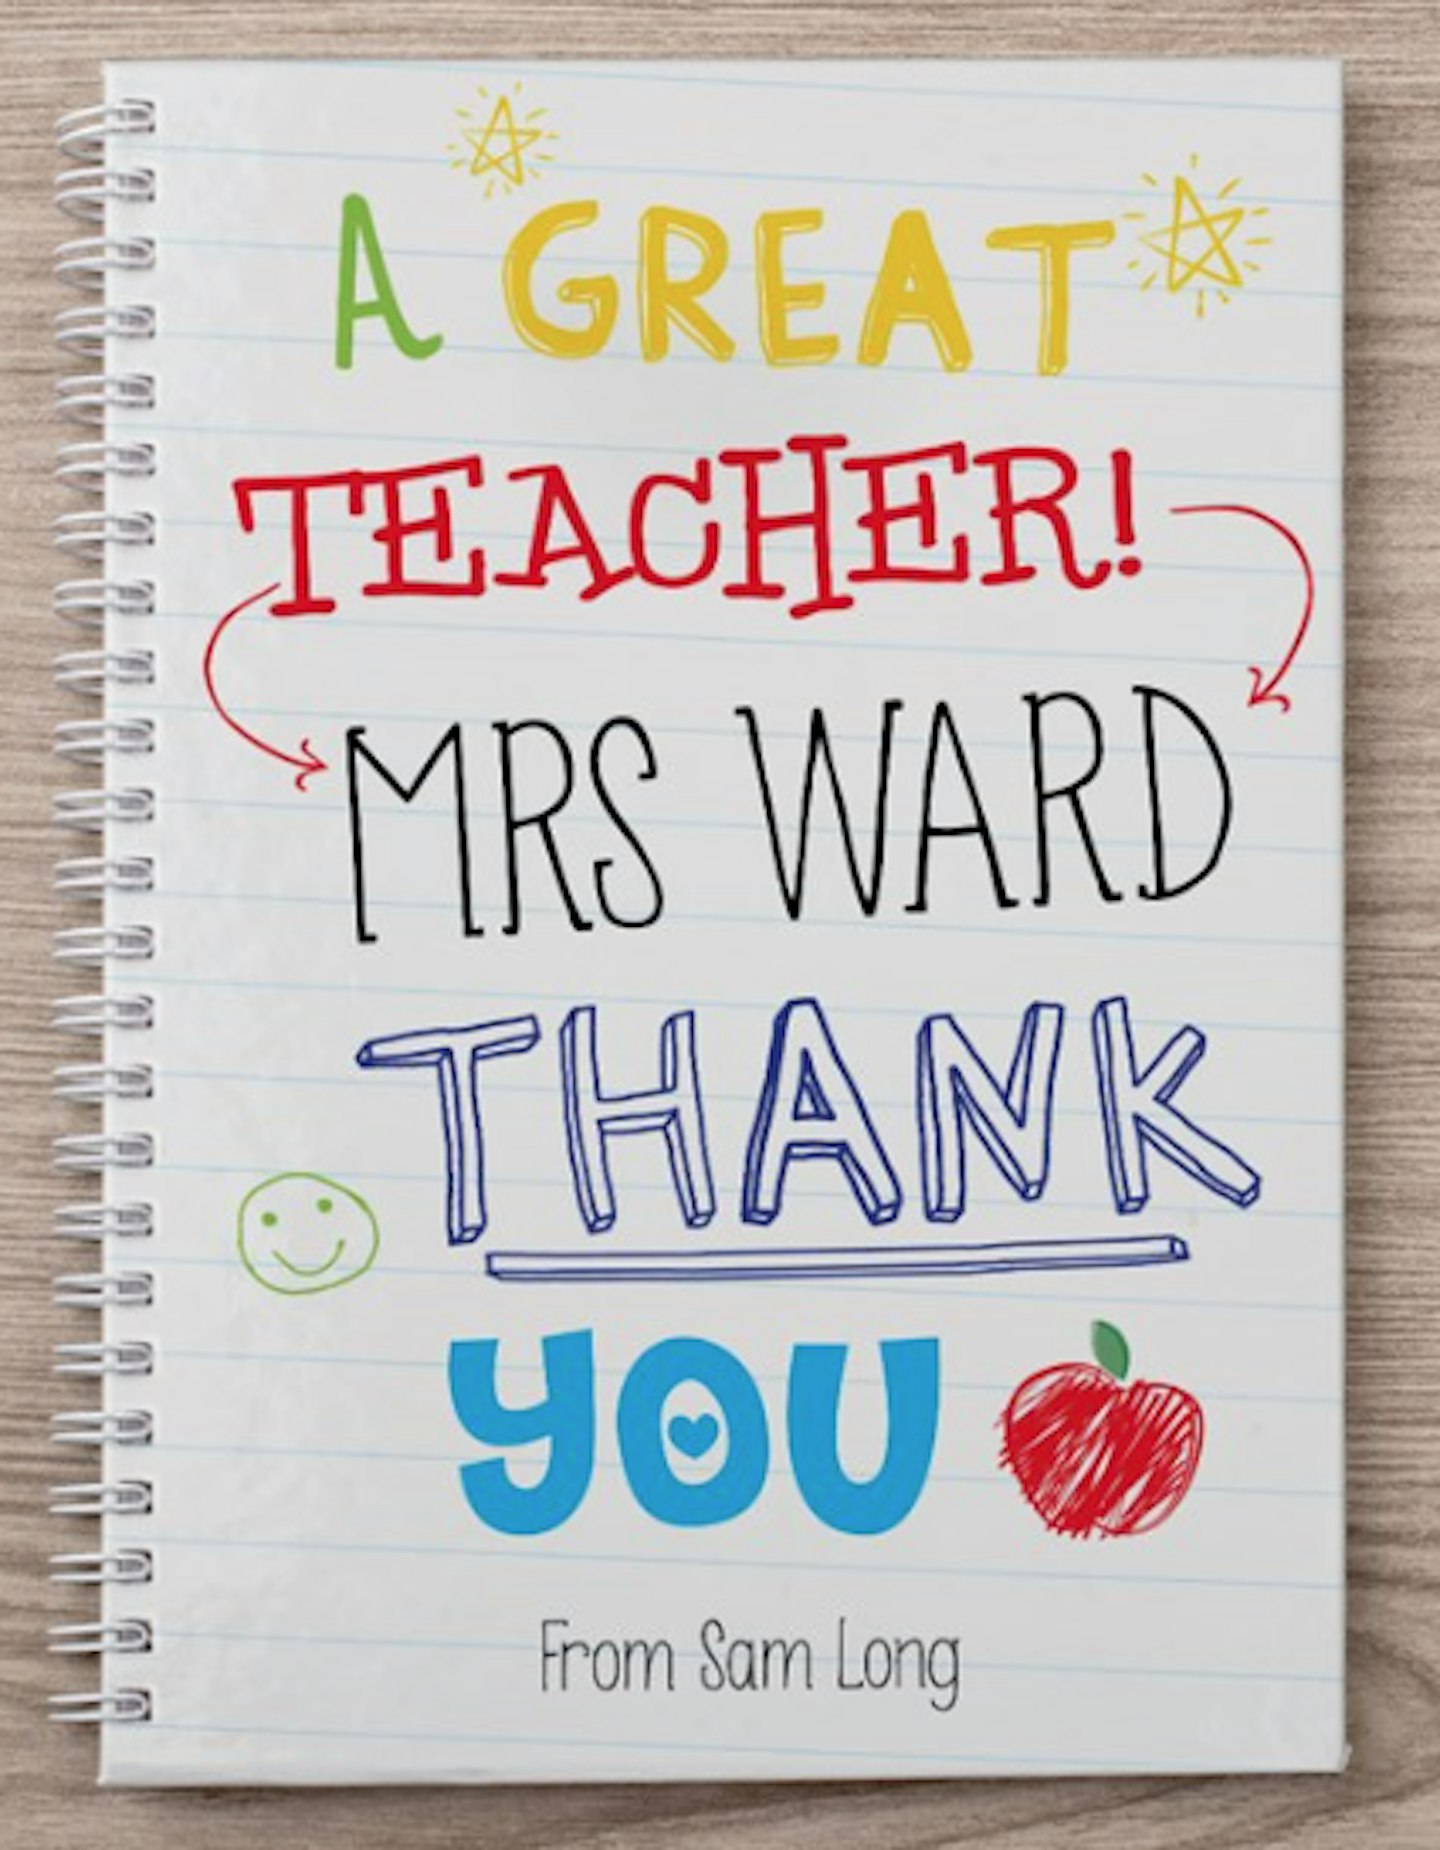 A GREAT
TEACHER!
MRS WARD
THANK
YOU
From Sam Long